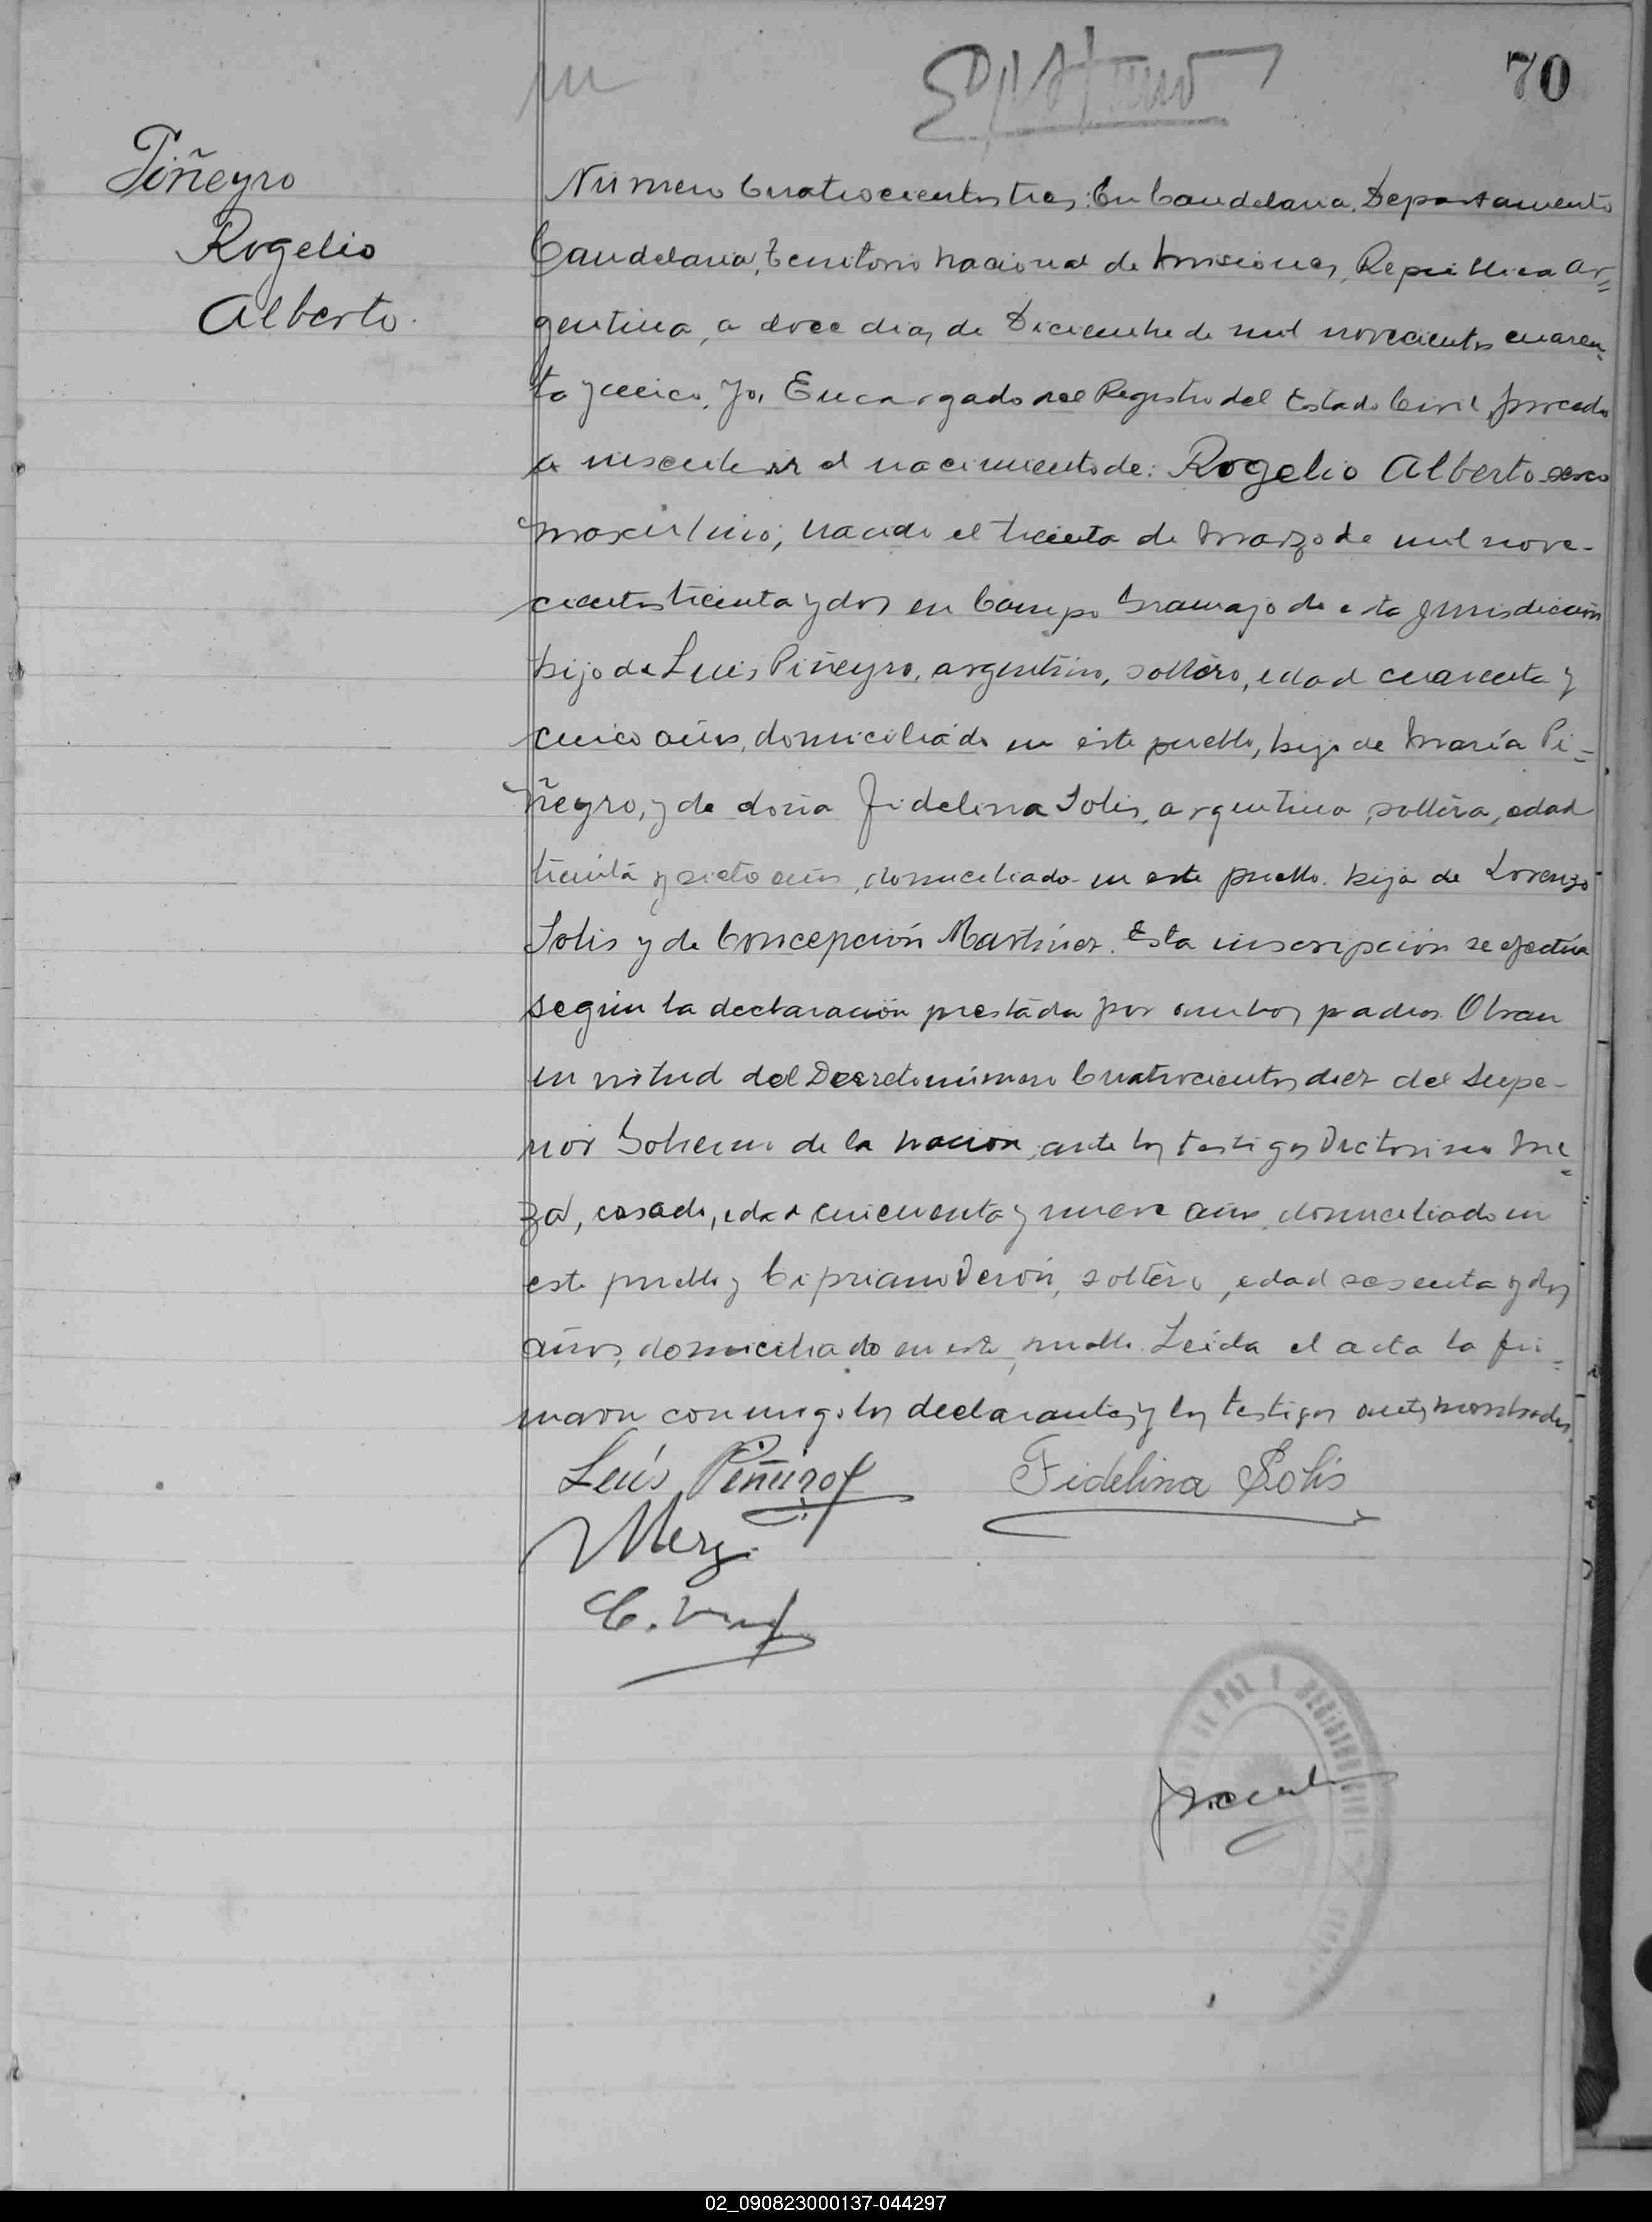 70
Piñeyro
Rogelio
Alberto.
Número Cuatrocientos tres: En Candelaria, Departamento
Candelaria, Territorio Nacional de Misiones, República Ar=
gentina, a doce dias de Diciembre de mil novecientos cuaren-
ta y cinco, Yo, Encargado del Registro del Estado Civil, procedo
a inscribir el nacimiento de: Rogelio Alberto sexo
masculino; nacido el treinta de Marzo de mil nove-
cientos treinta y dos en Campo Gramajo de esta Jurisdicción
hijo de Luis Piñeyro, argentino, soltero, edad cuarenta y
cinco años, domiciliado en este pueblo, hijo de María Pi-
ñeyro, y de doña Fidelina Solis, argentina, soltera, edad
treinta y siete años, domiciliado en este pueblo. hija de Lorenzo
Solis y de Concepción Martínez. Esta inscripción se efectúa
según la declaración prestada por ambos padres. Obran
en virtud del Decreto número Cuatrocientos diez del Supe-
rior Gobierno de la Nación, ante los testigos Victorino Me=
za, casado, edad cincuenta y nueve años domiciliado en
este pueblo y Cipriano Verón, soltero, edad sesenta y dos
años, domiciliado en este pueblo. Leída el acta la fir=
maron conmigo los declarantes y los testigos antes nombrados.
Luis Piñeiro Fidelina Solis
Meza
C. Verón
DE PAZ Y REGISTRO CIVIL
02_090823000137-044297